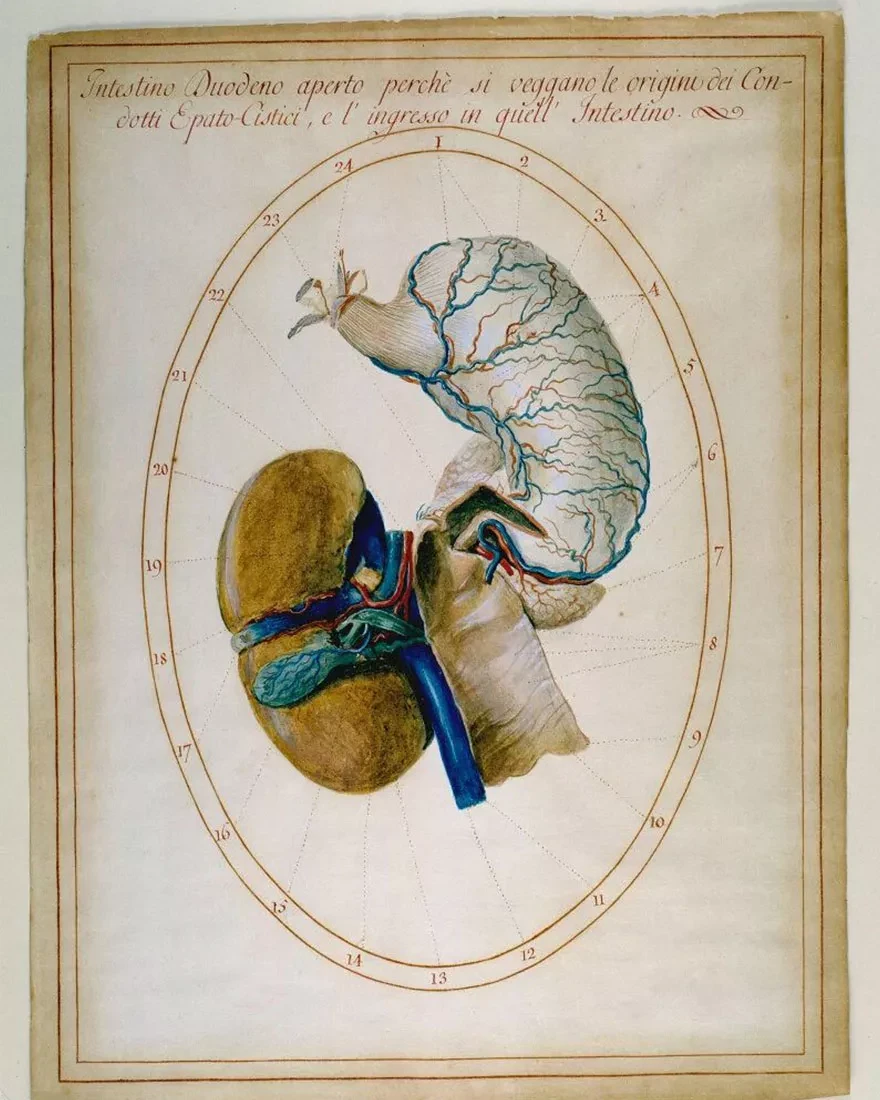 Intestino Duodeno aperto perchè si veggano le origini dei Con-
dotti Epato-Cistici, e l' ingresso in quell' Intestino.
1
2
3
4
5
6
7
8
9
10
11
12
13
14
15
16
17
18
19
20
21
22
23
24